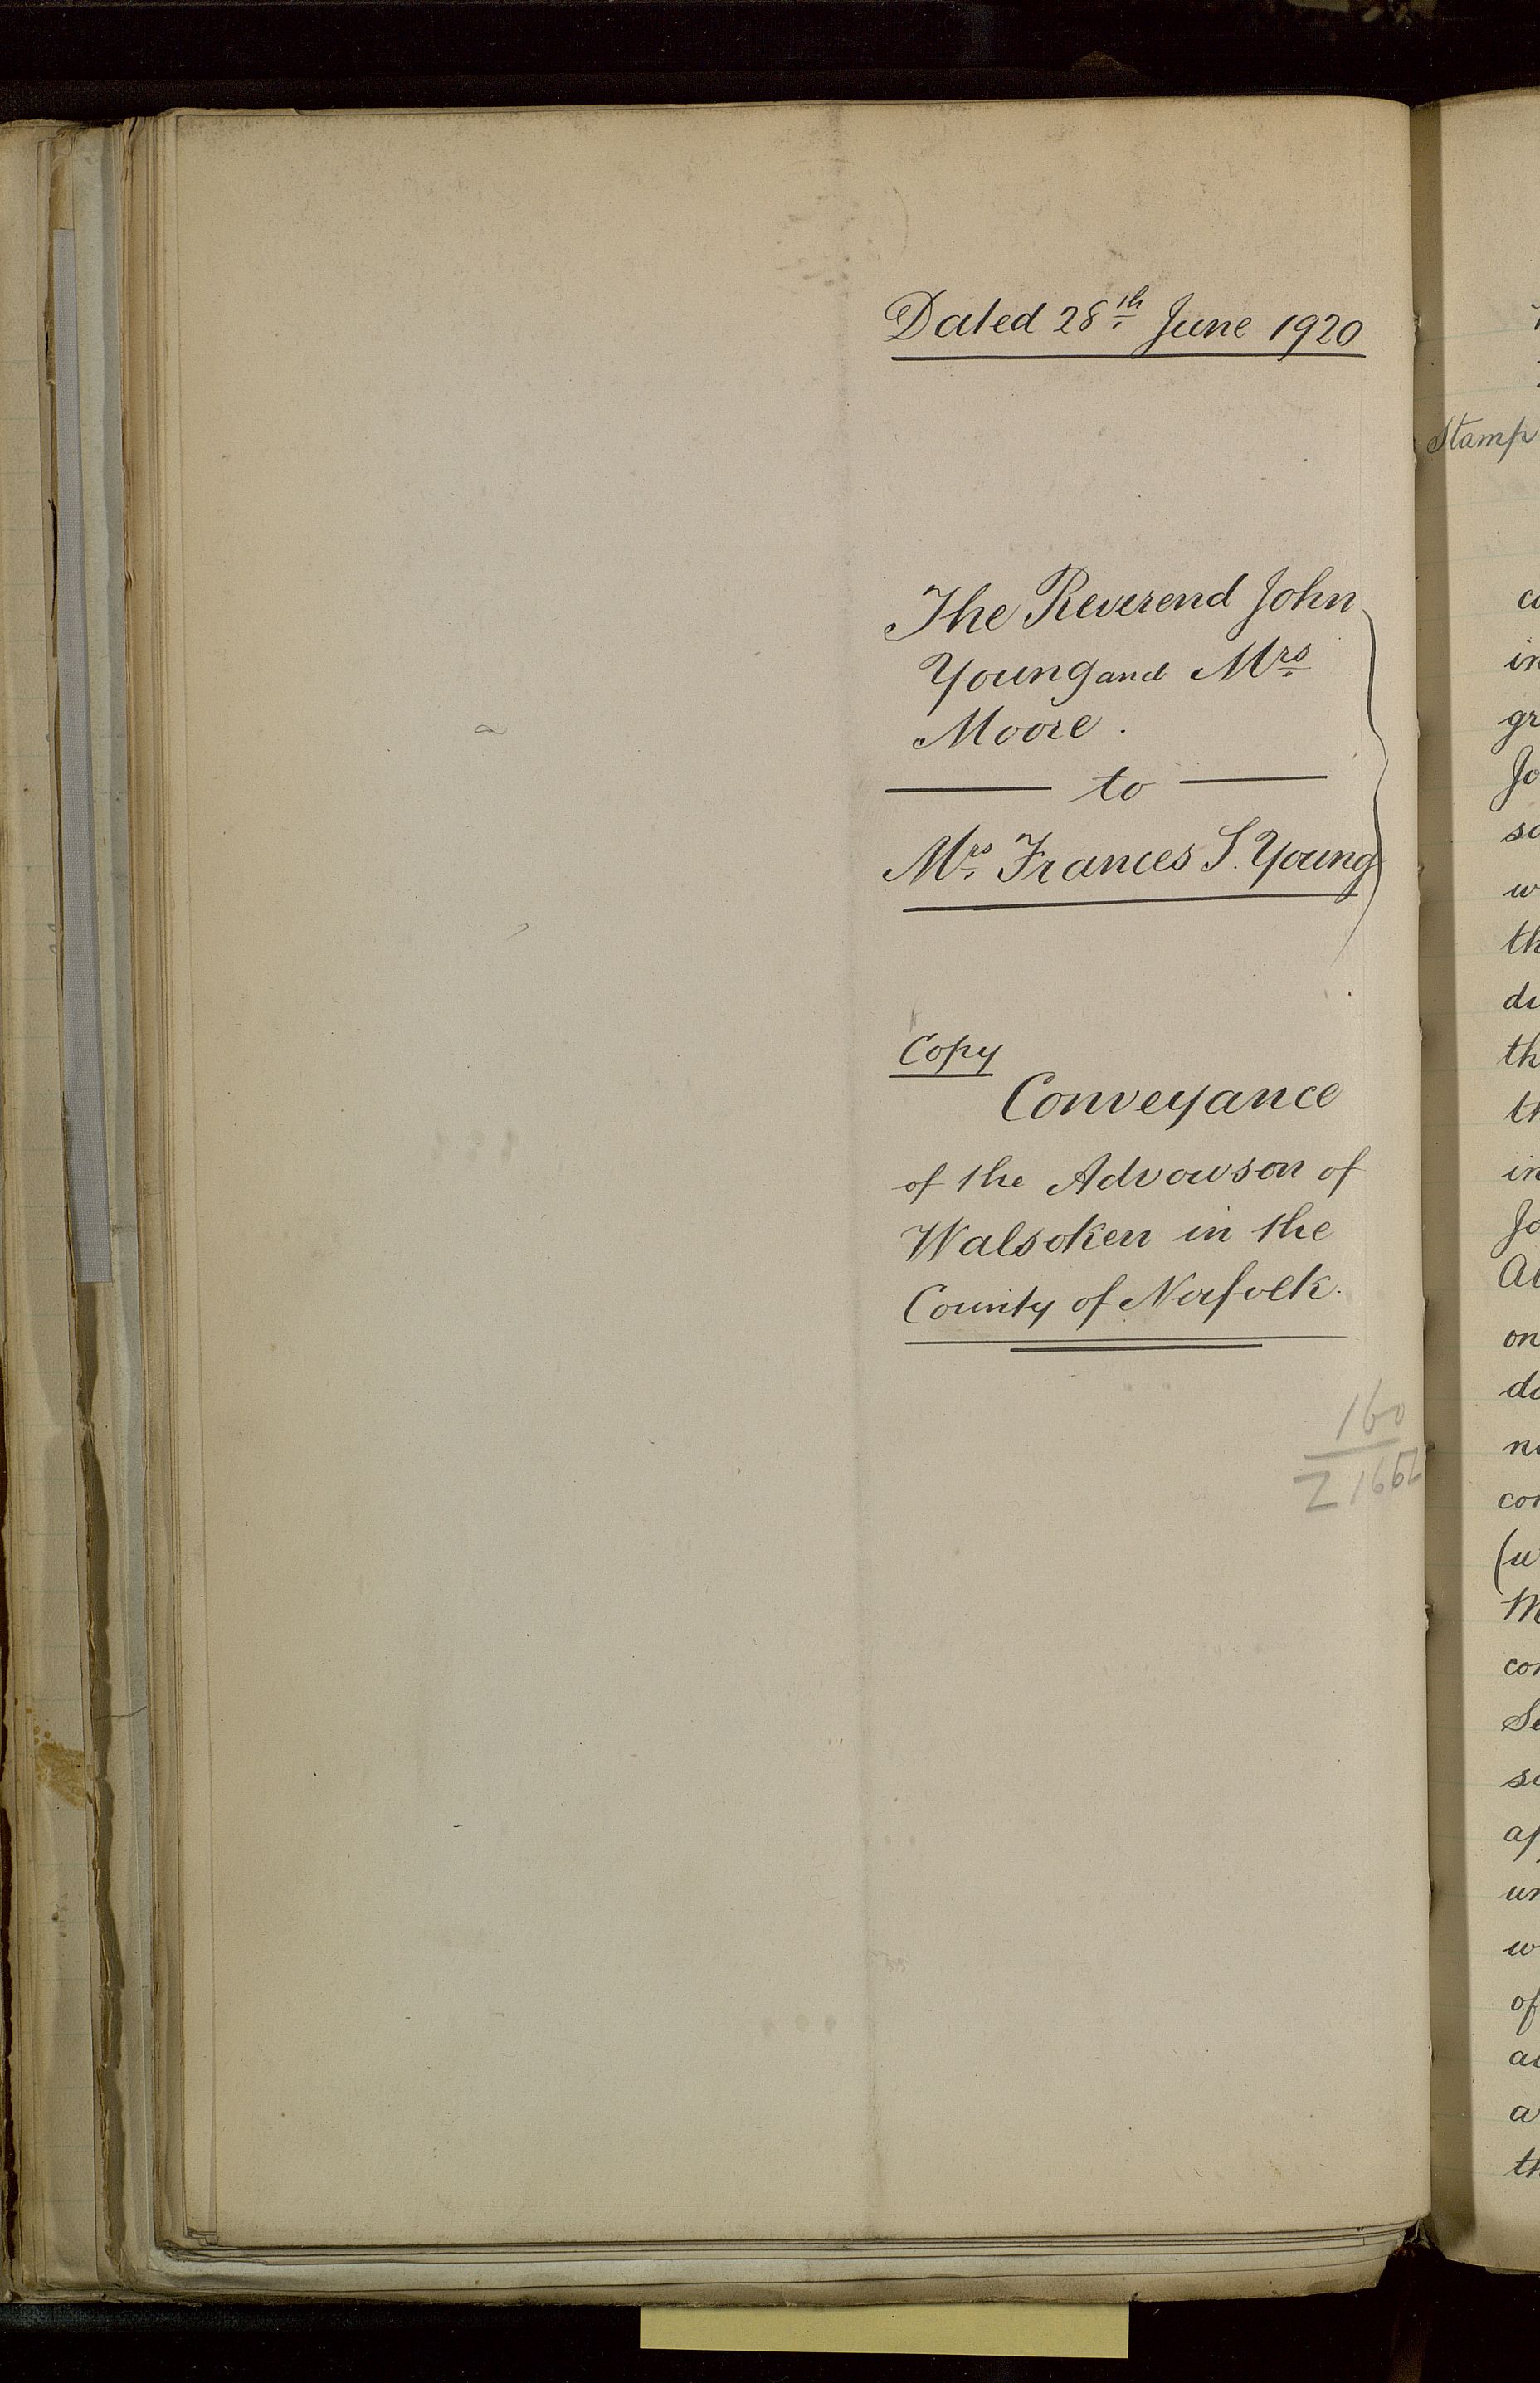 Dated 28th June 1920
The Reverend John
Young and Mrs
Moore.
to
Mrs Frances S. Young
Copy
Conveyance
of the Advowson of
Walsoken in the
County of Norfolk.
160
Stamp
in
Jo
th
th
in
Jo
on
(u
of
a